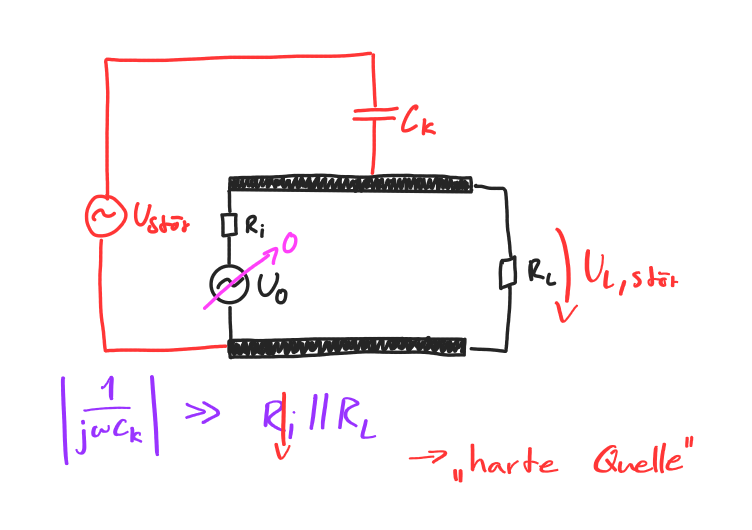 C_k
U_stör
R_i
0
U_0
R_L
U_L,stör
|1/(jωC_k)| ≫ R_i || R_L
→ „harte Quelle"